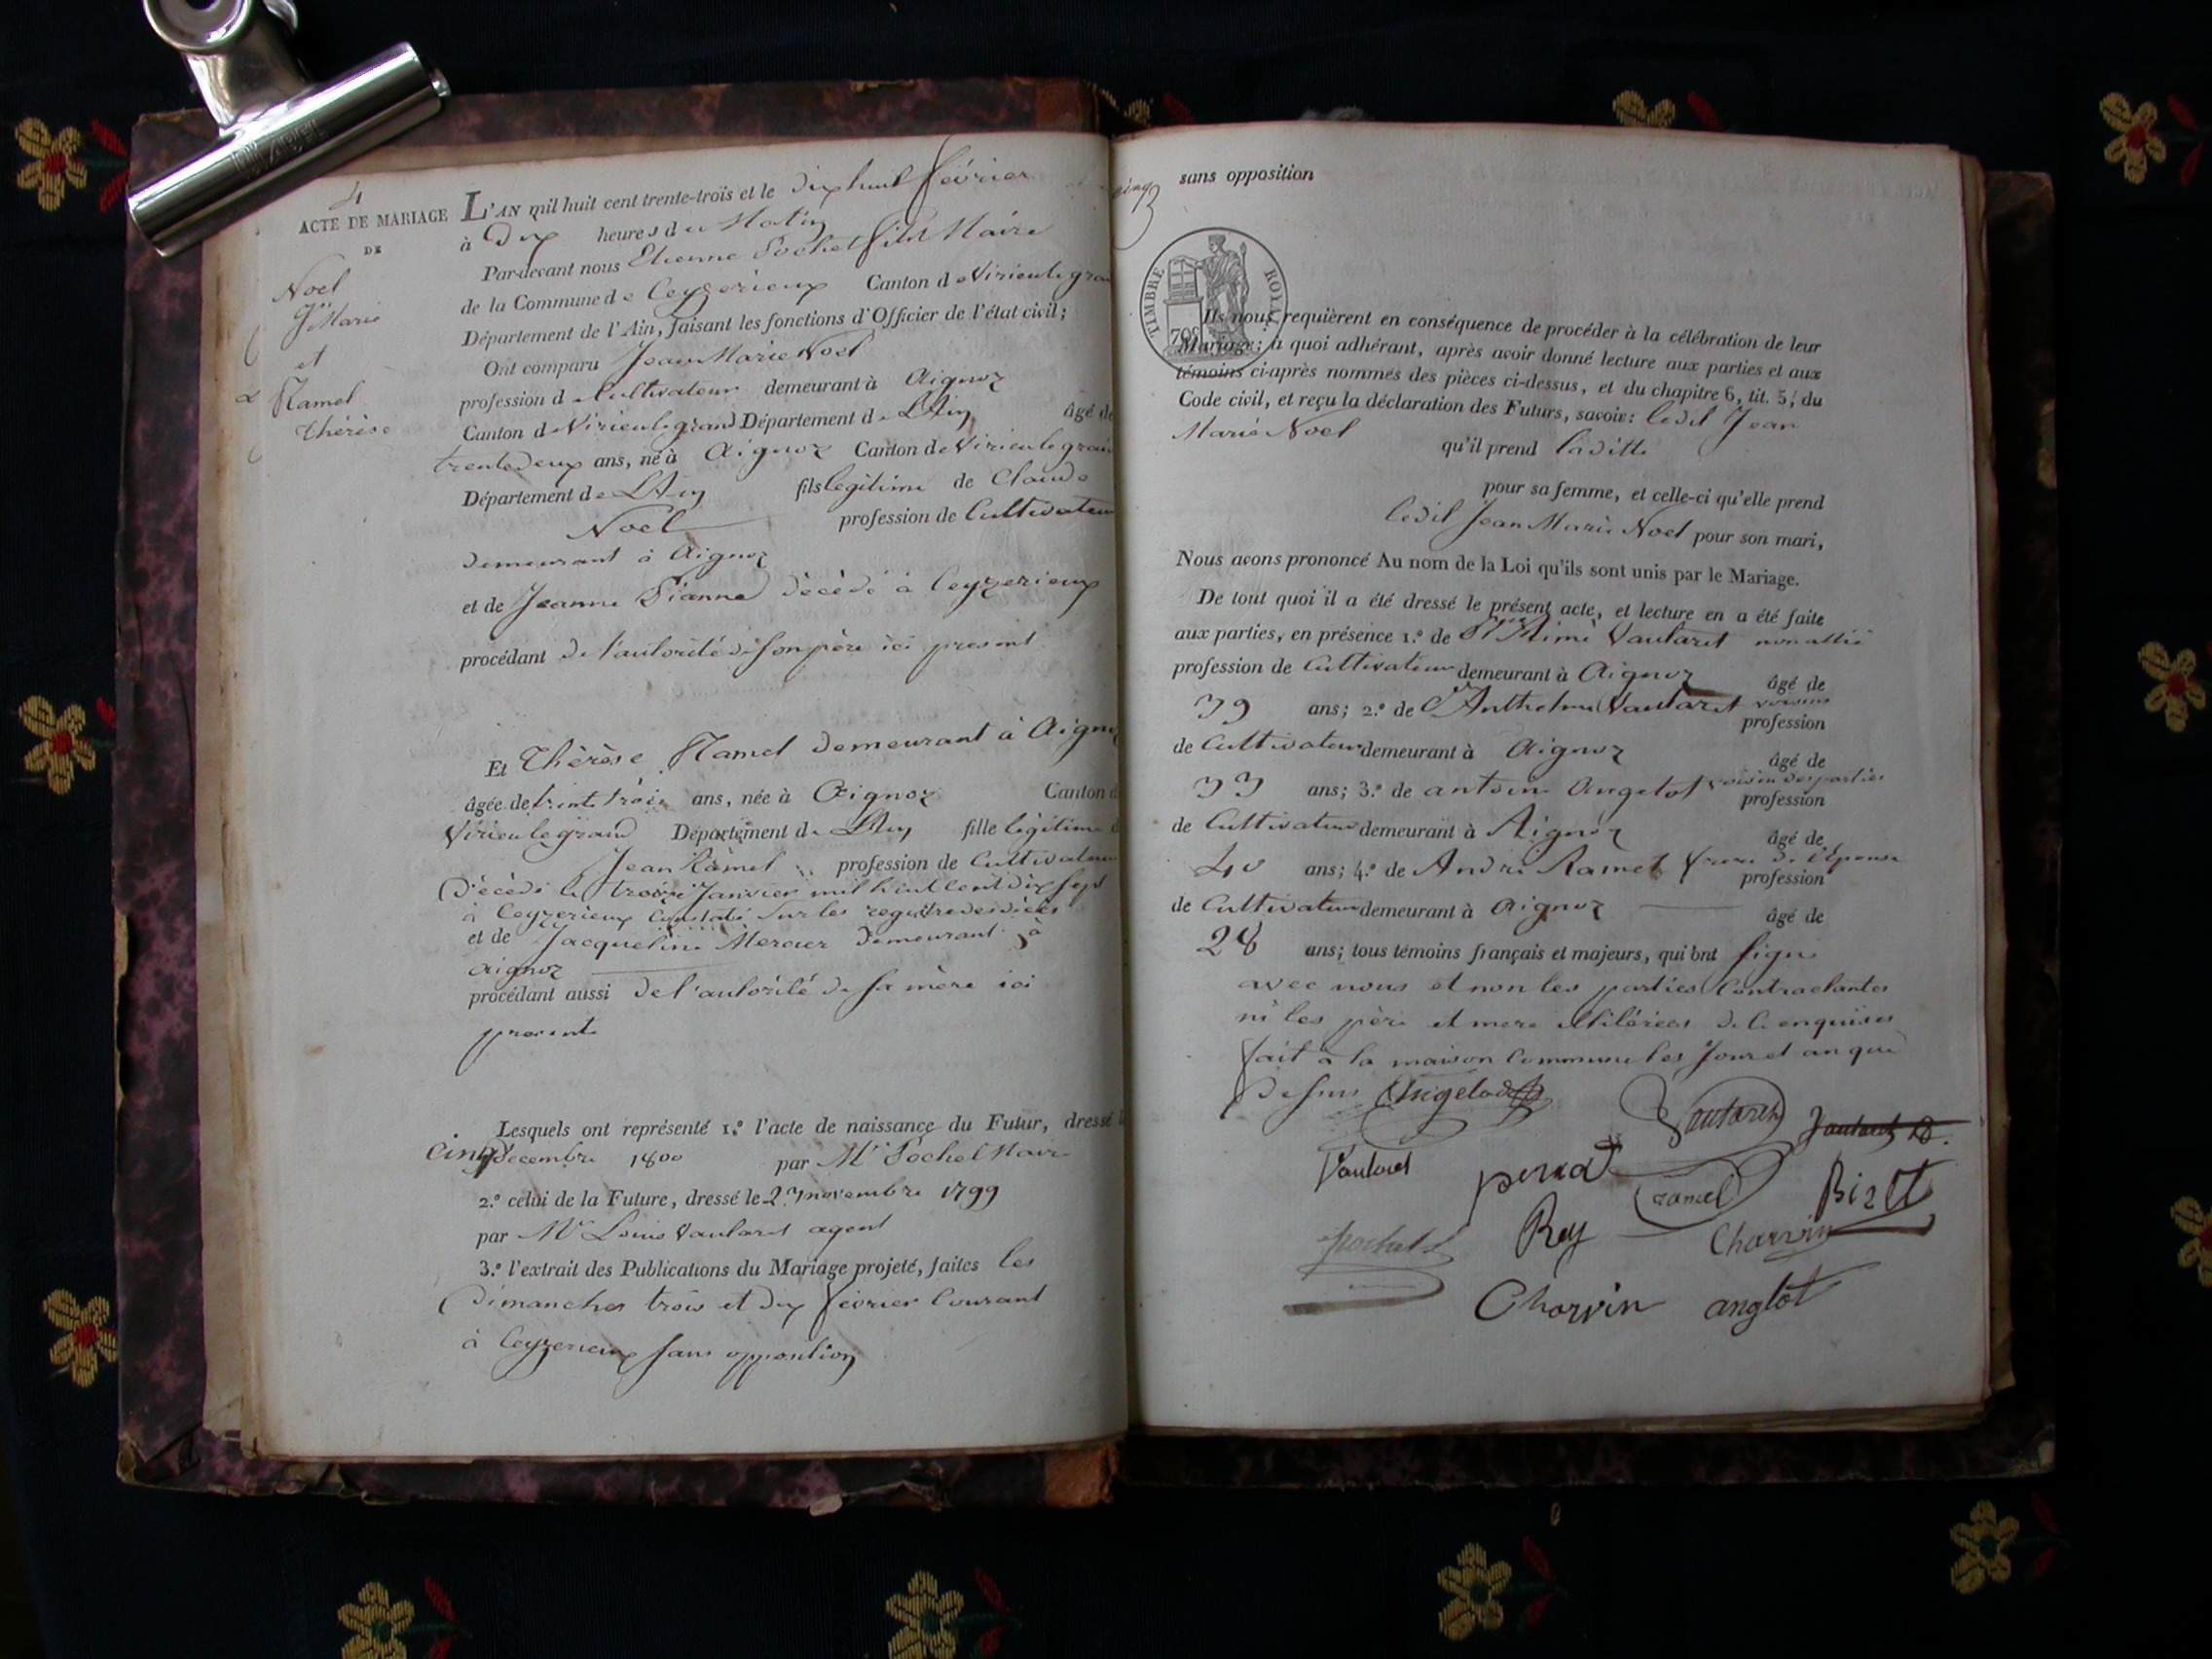 4
ACTE DE MARIAGE
DE
Noel
Jn Marie
et
Ramel
Thérèse
L'AN mil huit cent trente-trois et le dix huit février
à Dix heures du Matin
Par-devant nous Etienne Pochet fils Maire
de la Commune de Ceyzerieux Canton de Virieu le grand
Département de l'Ain, faisant les fonctions d'Officier de l'état civil;
Ont comparu Jean Marie Noel
profession de Cultivateur demeurant à Aignoz
Canton de Virieu le grand Département de L'Ain âgé de
trente deux ans, né à Aignoz Canton de Virieu le grand
Département de L'Ain fils legitime de Claude
Noel profession de Cultivateur
demeurant à Aignoz
et de Jeanne décèdé à Ceyzerieux
procédant de l'autorité de son père ici present
Et Thérèse Ramel demeurant à Aignoz
âgée de trente trois ans, née à Aignoz Canton de
Virieu le grand Département de L'Ain fille légitime de
Jean Ramel profession de Cultivateur
Décèdé le Janvier mil huit cent dix sept
à Ceyzerieux Constaté sur les registre des décès
et de Jacqueline Mercier demeurant à
aignoz
procédant aussi de l'autorité de sa mère ici
presente
Lesquels ont représenté 1.º l'acte de naissance du Futur, dressé le
cinq Décembre 1800 par Mr Pochet Maire
2.º celui de la Future, dressé le 23 novembre 1799
par Mr Louis Vautaret agent
3.º l'extrait des Publications du Mariage projeté, faites les
Dimanches trois et dix février Courant
à Ceyzerieux sans opposition
cinq
sans opposition
TIMBRE ROYAL
70c
Ils nous requièrent en conséquence de procéder à la célébration de leur
Mariage; à quoi adhérant, après avoir donné lecture aux parties et aux
témoins ci-après nommés des pièces ci-dessus, et du chapitre 6, tit. 5, du
Code civil, et reçu la déclaration des Futurs, savoir: ledit Jean
Marie Noel qu'il prend laditte
pour sa femme, et celle-ci qu'elle prend
ledit Jean Marie Noel pour son mari,
Nous avons prononcé Au nom de la Loi qu'ils sont unis par le Mariage.
De tout quoi il a été dressé le présent acte, et lecture en a été faite
aux parties, en présence 1.º de Vautaret non allié
profession de Cultivateur demeurant à Aignoz âgé de
39 ans; 2.º de Anthelme Vautaret voisins profession
de Cultivateur demeurant à Aignoz âgé de
33 ans; 3.º de antoine Angelot voisin des parties profession
de Cultivateur demeurant à Aignoz âgé de
40 ans; 4.º de André Ramel frère de l'Epouse profession
de Cultivateur demeurant à Aignoz âgé de
28 ans; tous témoins français et majeurs, qui ont signé
avec nous et non les parties Contractantes
ni les père et mere illitérées de ce enquises
fait à la maison Commune les Jour et an que
Dessus Angelot
Vautaret
Vautaret perrat ramel Bizet
pochet Rey Charvin
Charvin anglot